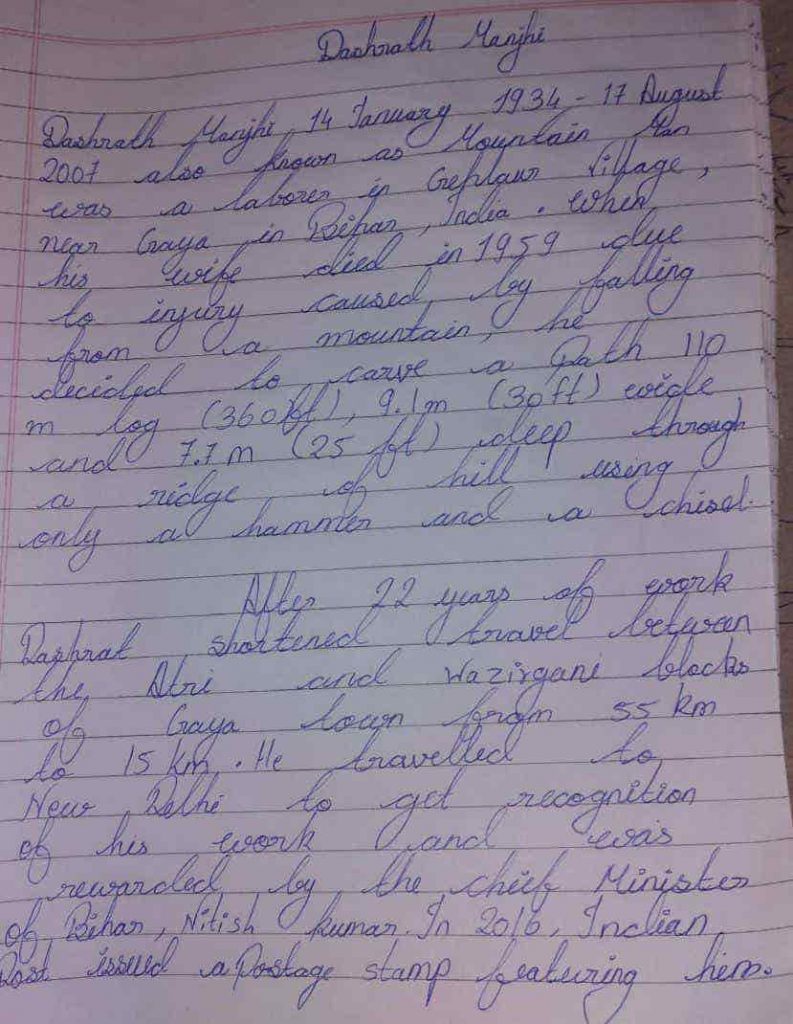 Dashrath Manjhi
Dashrath Manjhi, 14 January 1934 - 17 August
2007 also known as Mountain Man
was a laborer in Gehlaur Village,
near Gaya in Bihar, India. When
his wife died in 1959 due
to injury caused by falling
from a mountain, he
decided to carve a Path 110
m log (360 ft), 9.1m (30 ft) wide
and 7.7 m (25 ft) deep through
a ridge of hill using
only a hammer and a chisel.
After 22 years of work
Dashrat shortened travel between
the Atri and Wazirgani blocks
of Gaya town from 55 km
to 15 km. He travelled to
New Delhi to get recognition
of his work and was
rewarded by the chief Minister
of Bihar, Nitish kumar. In 2016, Indian
Post issued a Postage stamp featuring him.